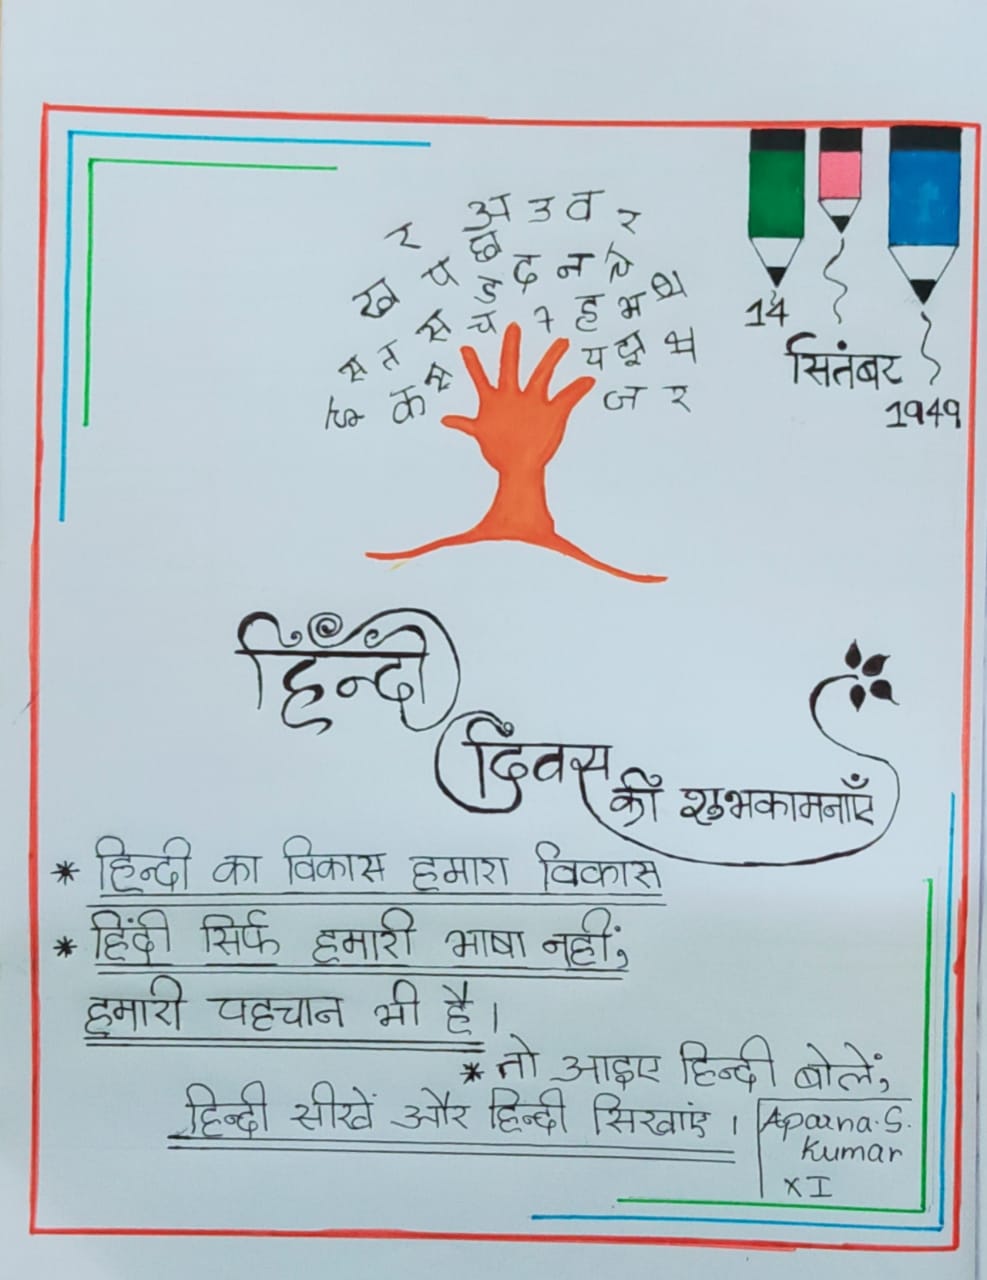 अ उ व र
र छ
ख प ड द न
स च ह भ
त य
क ज र
14
सितंबर
1949
हिँन्दी
दिँवस
कीँ शुभकामनाएँ
* हिन्दी का विकास हमारा विकास
* हिंदी सिर्फ हमारी भाषा नहीं;
हमारी पहचान भी है।
* तो आइए हिन्दी बोलें,
हिन्दी सीखें और हिन्दी सिखाएं।
Aparna.S.
Kumar
XI